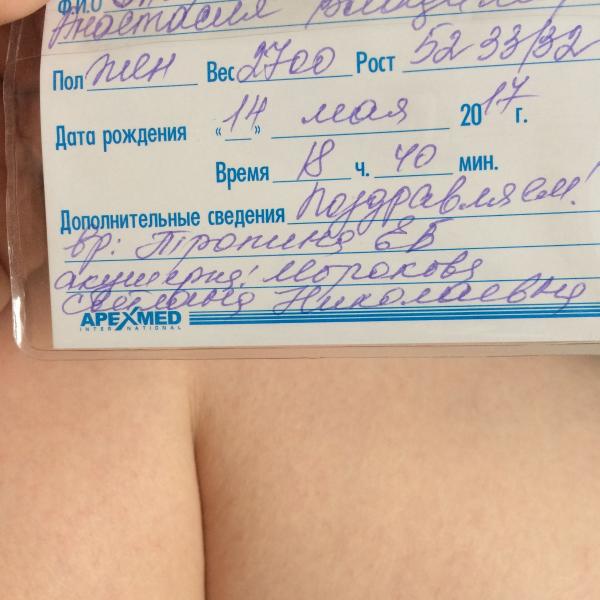 Ф.И.О
Анастасия
Пол жен Вес 2700 Рост 52 33/32
Дата рождения «14» мая 2017 г.
Время 18 ч. 40 мин.
Дополнительные сведения Поздравляем!
вр: Тропина ЕВ
акушерка: Морокова
Светлана Николаевна
APEXMED
INTERNATIONAL